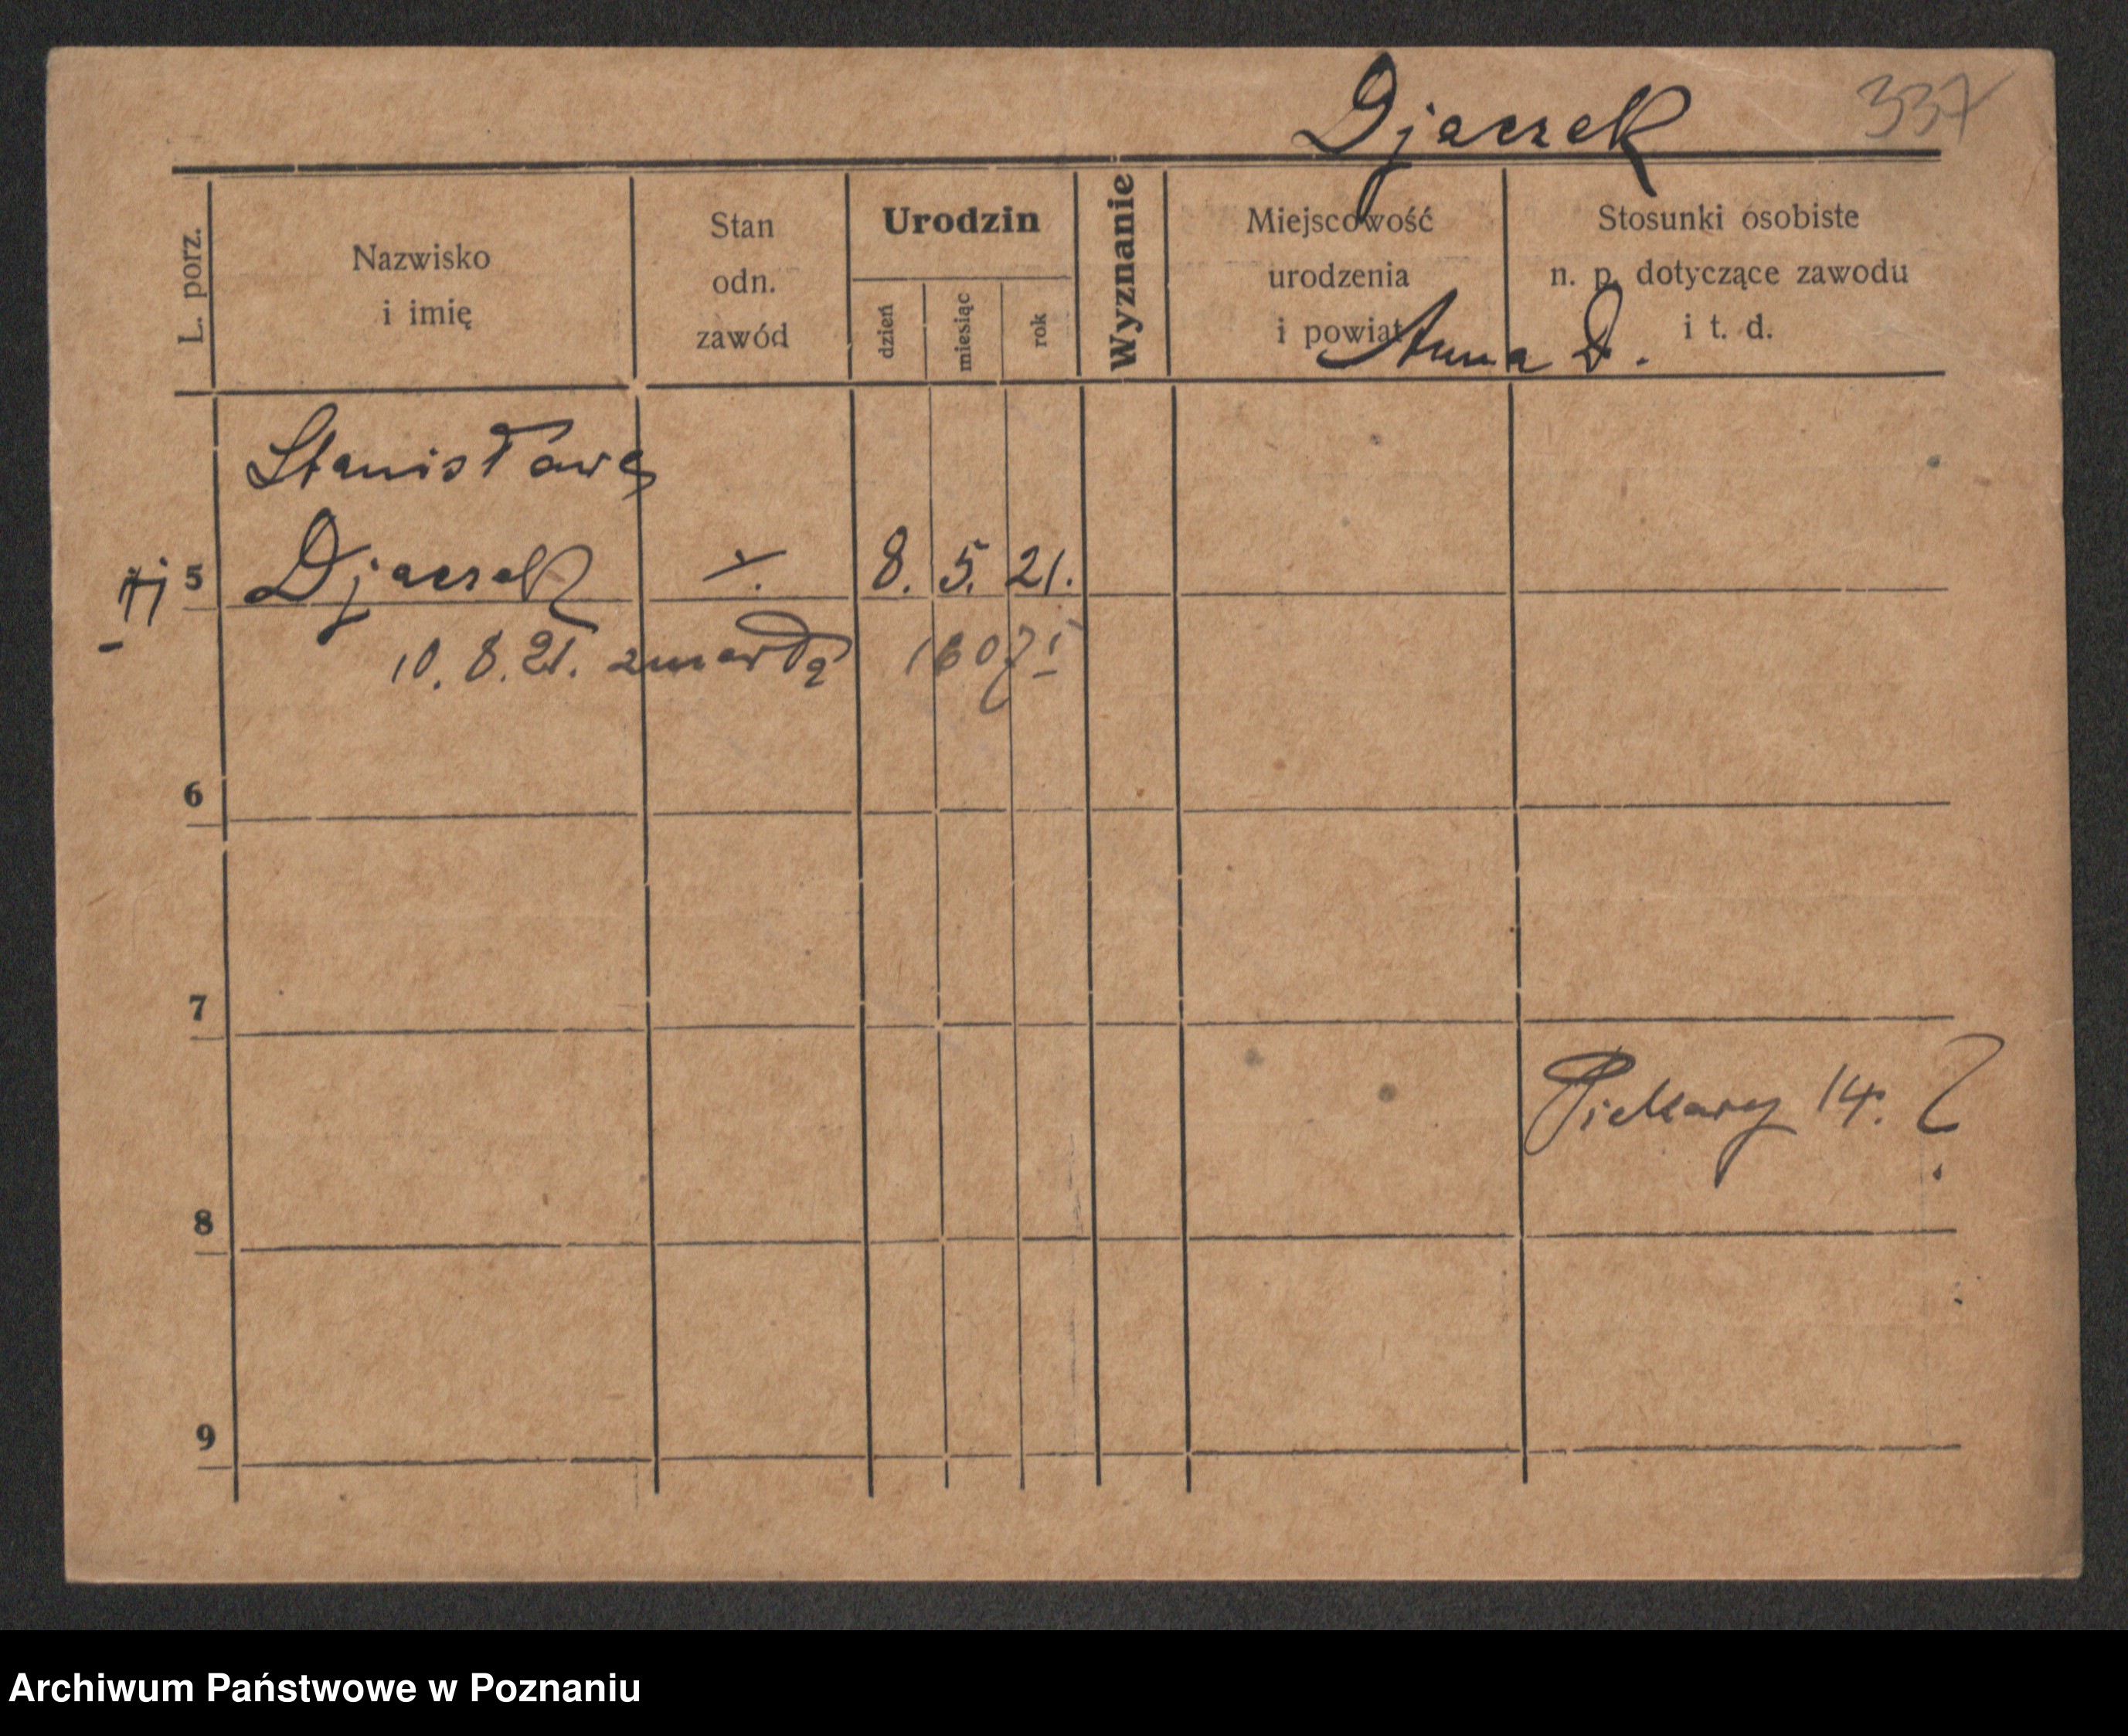 Djaczek 337
L. porz.
Nazwisko
i imię
Stan
odn.
zawód
Urodzin
dzień
miesiąc
rok
Wyznanie
Miejscowość
urodzenia
i powiat
Stosunki osobiste
n. p. dotyczące zawodu
i t. d.
Anna D.
Stanisława
5 Djaczek 8. 5. 21.
10. 8. 21. zmarła
6
7
Piekary 14. ?
8
9
Archiwum Państwowe w Poznaniu